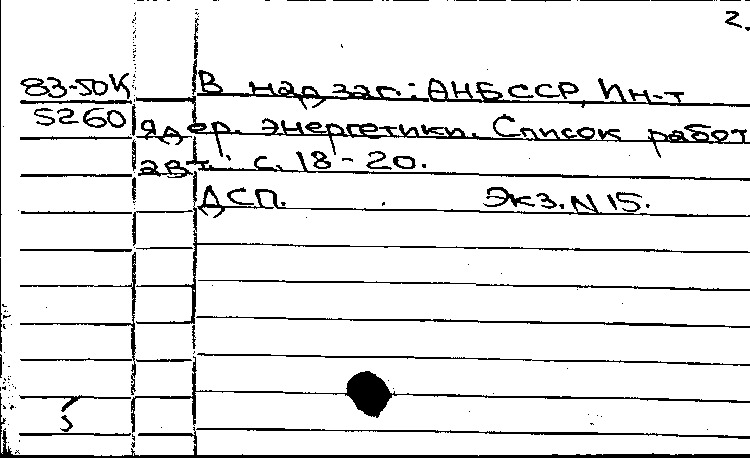 2.
83-50К В надзаг.: АНБССР, Ин-т
5260 ядер. энергетики. Список работ
авт.: с. 18-20.
ДСП. Экз. N 15.